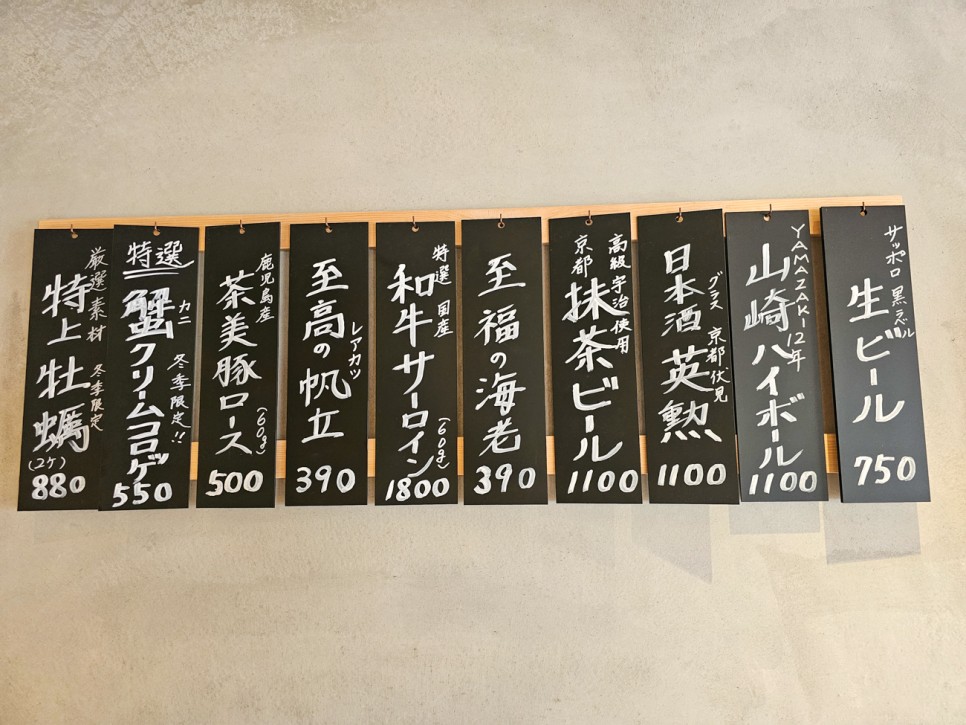 サッポロ黒ラベル
生ビール
750
YAMAZAKI12年
山崎ハイボール
1100
グラス 京都伏見
日本酒 英勲
1100
高級宇治使用
京都
抹茶ビール
1100
至福の海老
390
特選 国産
和牛サーロイン
(60g)
1800
レアカツ
至高の帆立
390
鹿児島産
茶美豚ロース
(60g)
500
特選
カニ
蟹クリームコロッケ
冬季限定!!
550
厳選素材 冬季限定
特上牡蠣
(2ケ)
880